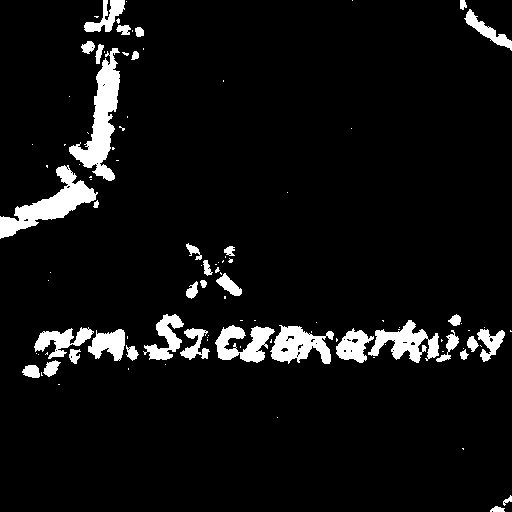 gm. Szczekarków